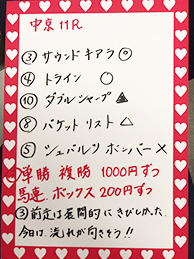 中京 11R
③ サウンドキアラ ◎
④ トライン ○
⑩ ダブルシャープ ▲
⑧ バケットリスト △
⑤ シュバルツボンバー ×
③単勝 複勝 1000円ずつ
馬連 ボックス 200円ずつ
③前走は展開的にきびしかった。
今回は、流れが向きそう!!